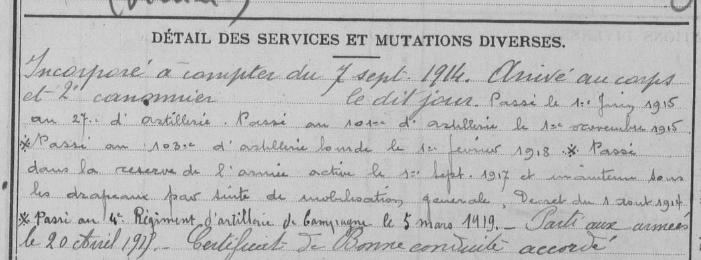 DÉTAIL DES SERVICES ET MUTATIONS DIVERSES.
Incorporé à compter du 7 sept. 1914. Arrivé au corps
et 2e canonnier le dit jour. Passé le 1er Juin 1915
au 27e d'artillerie. Passé au 101e d'artillerie le 1er novembre 1915.
* Passé au 103e d'artillerie lourde le 1er février 1918 * Passé
dans la réserve de l'armée active le 1er sept. 1917 et maintenu sous
les drapeaux par suite de mobilisation générale, Décret du 1 août 1914
* Passé au 4e Régiment d'artillerie de Campagne le 5 mars 1919. _ Parti aux armées
le 20 Avril _ Certificat de Bonne conduite accordé